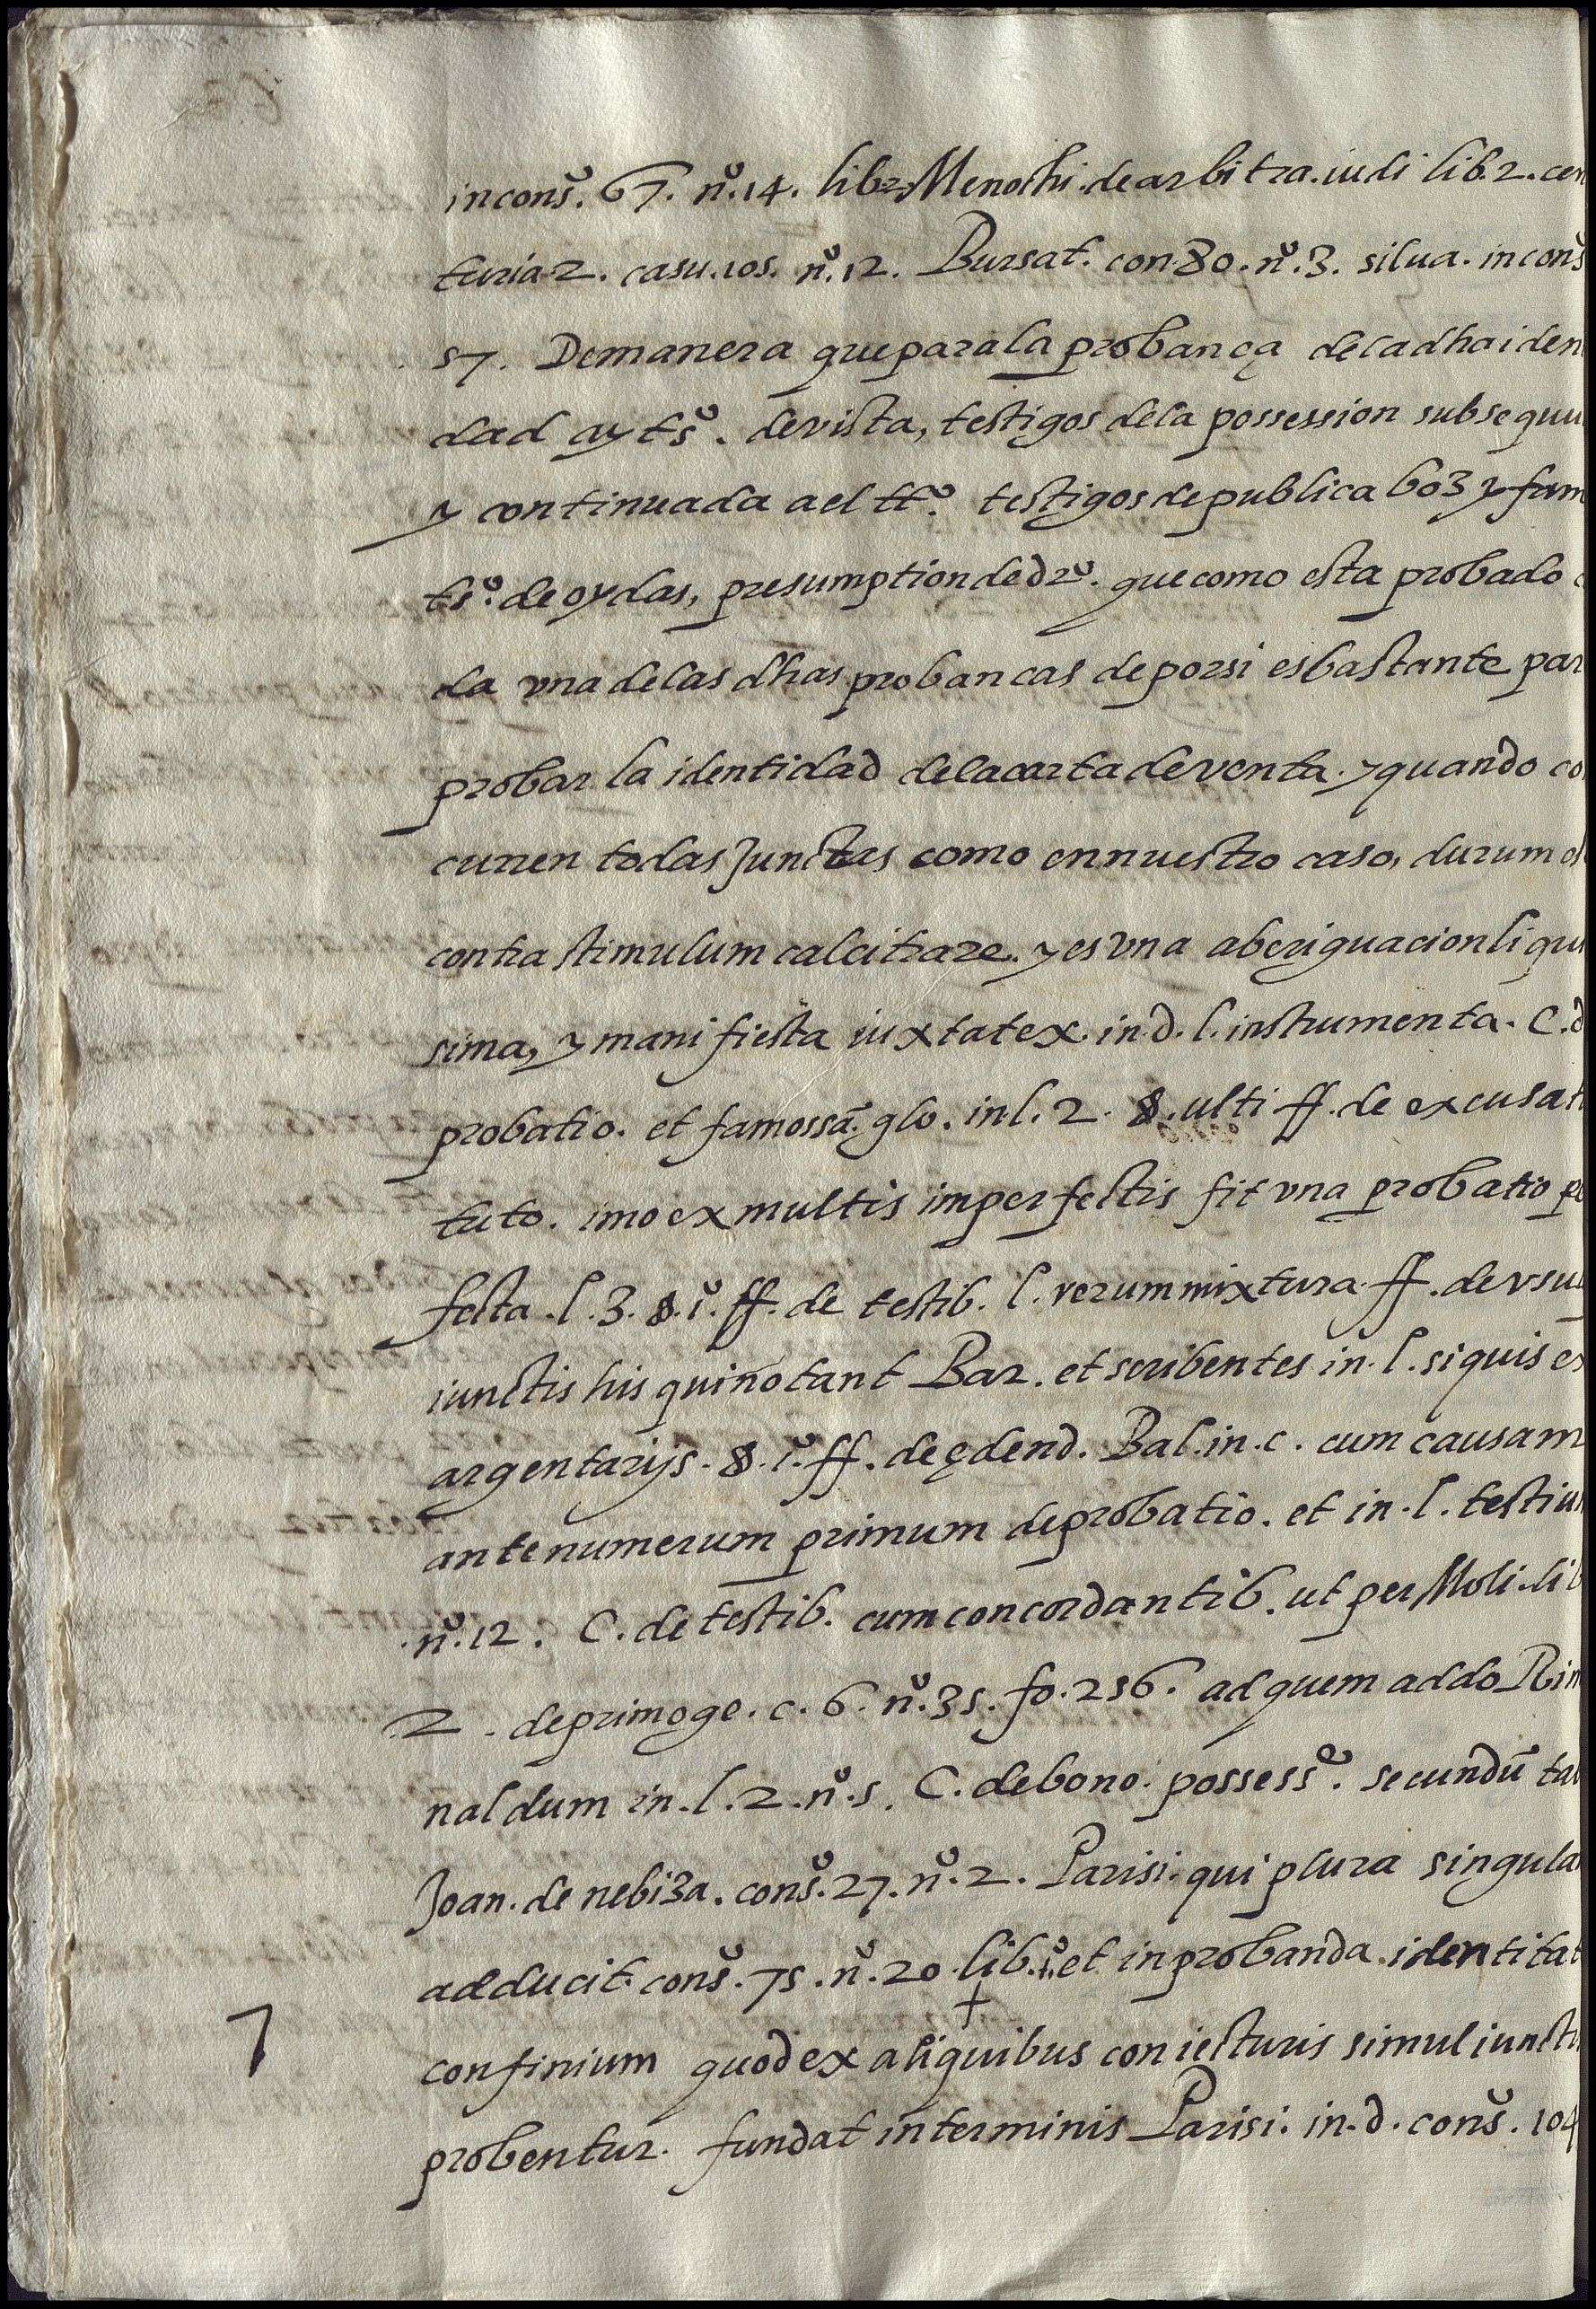 in consº. 67. nº. 14. lib 2. Menochi. de arbitra. iudi lib. 2. cen
turia 2. casu. 105. nº. 12. Bursat. con 80. nº. 3. silua. in consº
57. De manera que para la probança de la dha iden
dad ay tsº. de vista, testigos de la possession subsequu
y continuada a el ttº. testigos de publica boz y fam
tsº. de oydas, presumption de drº. que como esta probado c
da vna de las dhas probancas de por si es bastante par
probar la identidad de la carta de venta. y quando co
curren todas Junctas como en nuestro caso, durum es
contra stimulum calcitrare. y es vna aberiguacion liqui
sima, y manifiesta iuxta tex. in. d. l. instrumenta. C. d
probatio. et famossã. glo. in l. 2. §. ulti ff. de excusat
tuto. imo ex multis imperfectis fit vna probatio pe
fecta. l. 3. §. iº. ff. de testib. l. rerum mixtura ff. de vsu
iunctis his qui notant Bar. et scribentes in. l. si quis ex
argentarijs. §. iº. ff. de ędend. Bal. in. c. cum causam
ante numerum primum de probatio. et in. l. testium
nº. 12. C. de testib. cum concordantib. ut per Moli. lib
2. de primoge. c. 6. nº. 35. fo. 256. ad quem addo Rim
naldum in. l. 2. nº. 5. C. de bono. possessᵉ. secundũ tab
Joan. de nebiza. consº. 27. nº. 2. Parisi. qui plura singula
adducit. consº. 75. nº. 20. lib. iº. et in probanda identitat
7 confinium quod ex aliquibus coniecturis simul iuncti
probentur. fundat in terminis Parisi. in. d. consº. 104